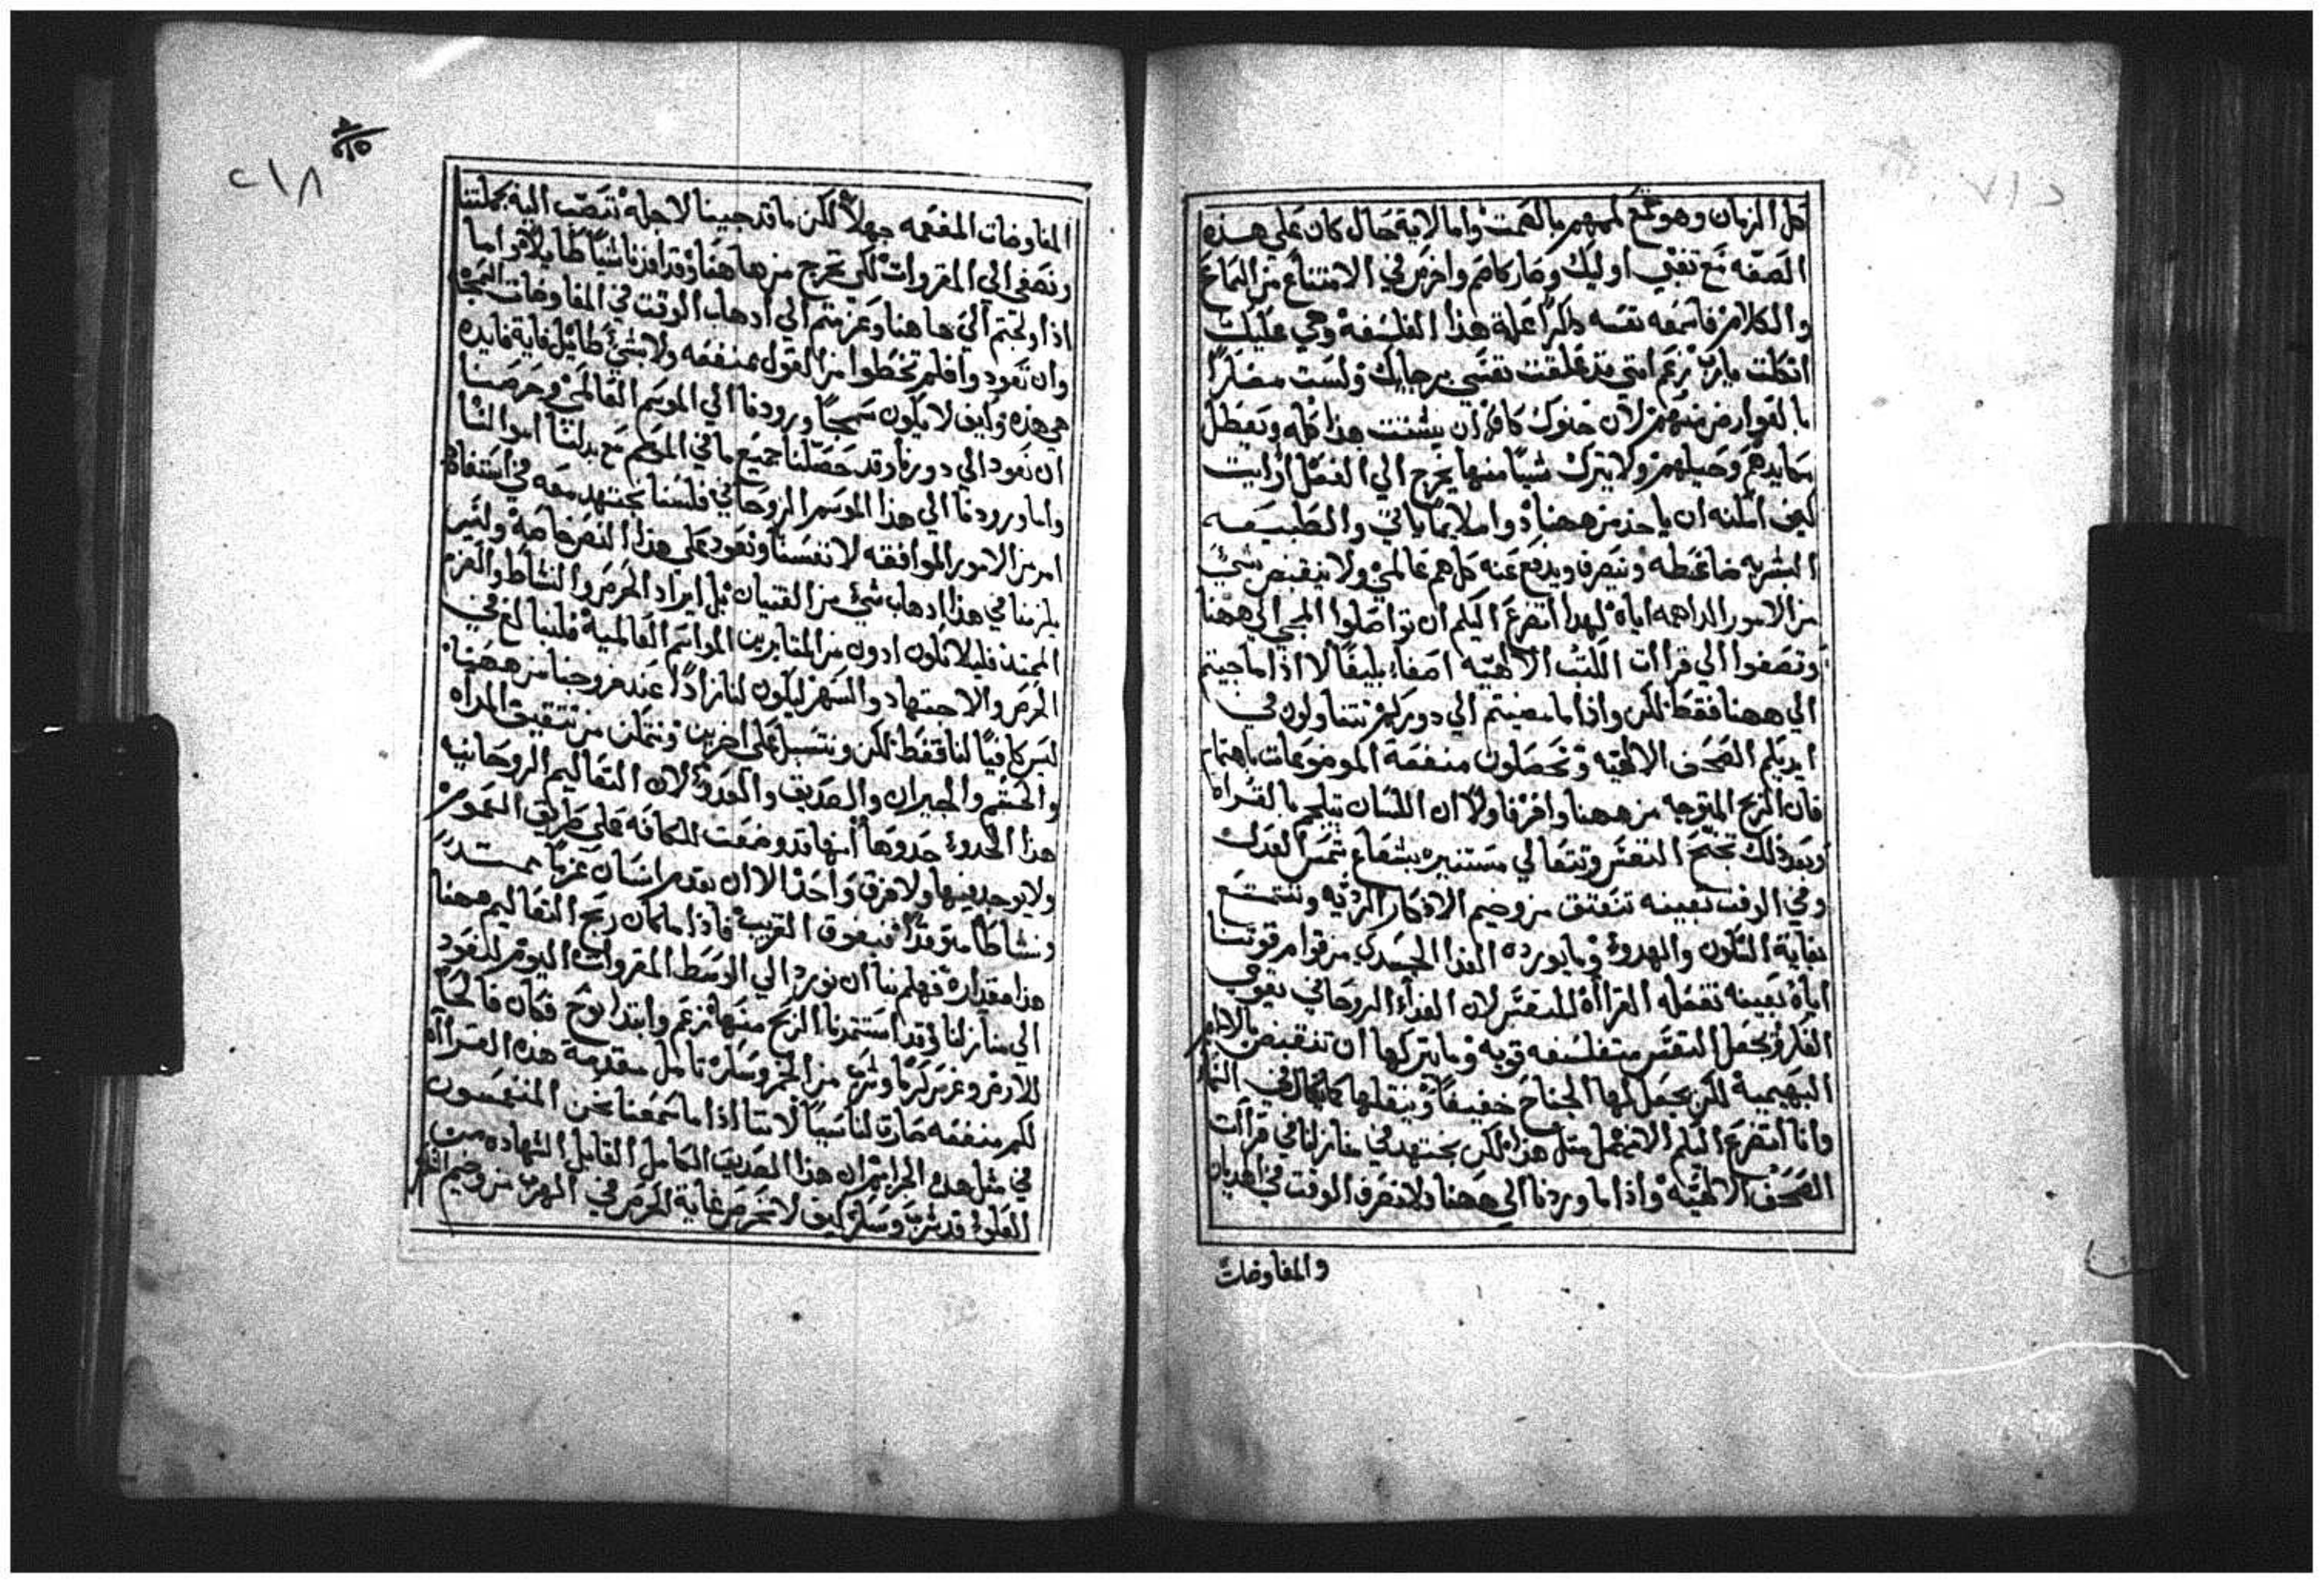 كل الزمان وهو مع لمهم بالصمت واما لاية حال كان علي هذه
الصفه مع تفتي اوليك وصار كاصم واخرس في الامتناع من السماع
والكلام فاسمعه نفسه ذاكرا علة هذا الفلسفة وهي عليك
اتكلت يارب زعم انني قد علقت نفسي برجايك ولست مضطرا
بالعوارض منهم لان حنوك كافي ان يشتت هذا كله ويعطل
مكايدهم وحيلهم ولا يترك شيا منها يخرج الي الفعل ارايت
كيف امكنه ان ياخذ من ههنا دوا ملايما ياتي والطبيعه
البشريه ضاغطه وتنصرف ويدفع عنه كل هم عالمي ولا ينقبض بشي
من الامور الداهمه اياه لهذا اتضرع اليكم ان تواصلوا المجي الي ههنا
وتصغوا الي قراات الكتب الالهيه اصغاء بليغا لا اذا ما جيتم
الي ههنا فقط لكن واذا ما مضيتم الي دوركم تتناولون في
ايديكم الصحف الالهيه وتحصلون منفعة الموضوعات باهتمام
فان الربح المتوجه من ههنا وافر فاولا ان اللسان يتلجم بالقراه
وبعد ذلك تجنح النفس وتتعالي مستنيره بشعاع شمس العدل
وفي الوقت بعينه تنعتق من وخيم الافكار الرديه وتتمتع
بغاية السكون والهدوء وما يورده الغذا الجسدي من قوام قوتنا
اياه بعينه تفعله القرااة للنفس لان الغذاء الروحاني يقوي
الفكر ويجعل النفس متفلسفه قويه وما يتركها ان تنقبض بالالام
البهيميه لكن يجعل لها الجناح خفيفا وينقلها كما يقال في السماء
وانا اتضرع اليكم الا نهمل مثل هذا لكن نجتهد في منازلنا في قراات
الصحف الالهيه واذا ما وردنا الي ههنا ولا نصرف الوقت في الهذيان
والمفاوضات
٢١٨
المفاوضات المفعمه جهلا لكن ما قد جينا لاجله ننصب اليه بجملتنا
ونصغي الي المقروات لكي نخرج من هاهنا وقد افدنا شيا طايلا واما
اذا ولجتم الي هاهنا وعزمتم الي اذهاب الوقت في المفاوضات القبيحه
وان تعودوا فلم تحظوا من القول بمنفعه ولا بشي طايل فاية فايده
هي هذه وكيف لا يكون سمجا ورودنا الي الموسم العالمي وحرصنا
ان نعود الي دورنا وقد حصلنا جميع ما في الموسم مع بدلنا اموالنا
واما ورودنا الي هذا الموسم الروحاني فلسنا نجتهد معه في استفادة
امر من الامور الموافقه لانفسنا ونعود علي هذا النص خاصة وليس
يلزمنا في هذا اذهاب شي من القنيان بل ايراد الحرص والنشاط والعزم
الممتد فليلا نكون ادون من المثابرين المواسم العالمية فلنبالغ في
الحرص والاجتهاد والسهر ليكون لنا زادا عند خروجنا من ههنا
ليس كافيا لنا فقط لكن ونتسبل علي اخرين ونتمكن من تثقيف المراه
والحشم والجيران والصديق والعدو لان التعاليم الروحانيه
هذا الحدود حدودها انها قد وضعت للكافه علي طريق العموم
ولا يوجد بينها ولا فرق واحدا الا ان يقدم انسان عزما ممتدا
ونشاطا متوقدا فيفوق القريب فاذا ما كان ربح التعاليم ههنا
هذا مقداره فهلم بنا ان نورد الي الوسط المقروات اليوم لنعود
الي منازلنا وقد استثمرنا الربح منها زعم وابتدا نوح فكان فالحا
للارض وغرس كرما وشرب من الخمر وسكر تامل مقدمة هذه القرااة
لكم منفعه صارت لنا سيا لاننا اذا ما سمعنا نحن المنغمسون
في مثل هذه الجرايم ان هذا الصديق الكامل القابل الشهاده من
العلو قد شرب وسكر كيف لا نحرص غاية الحرص في الهرب من وخيم السكر